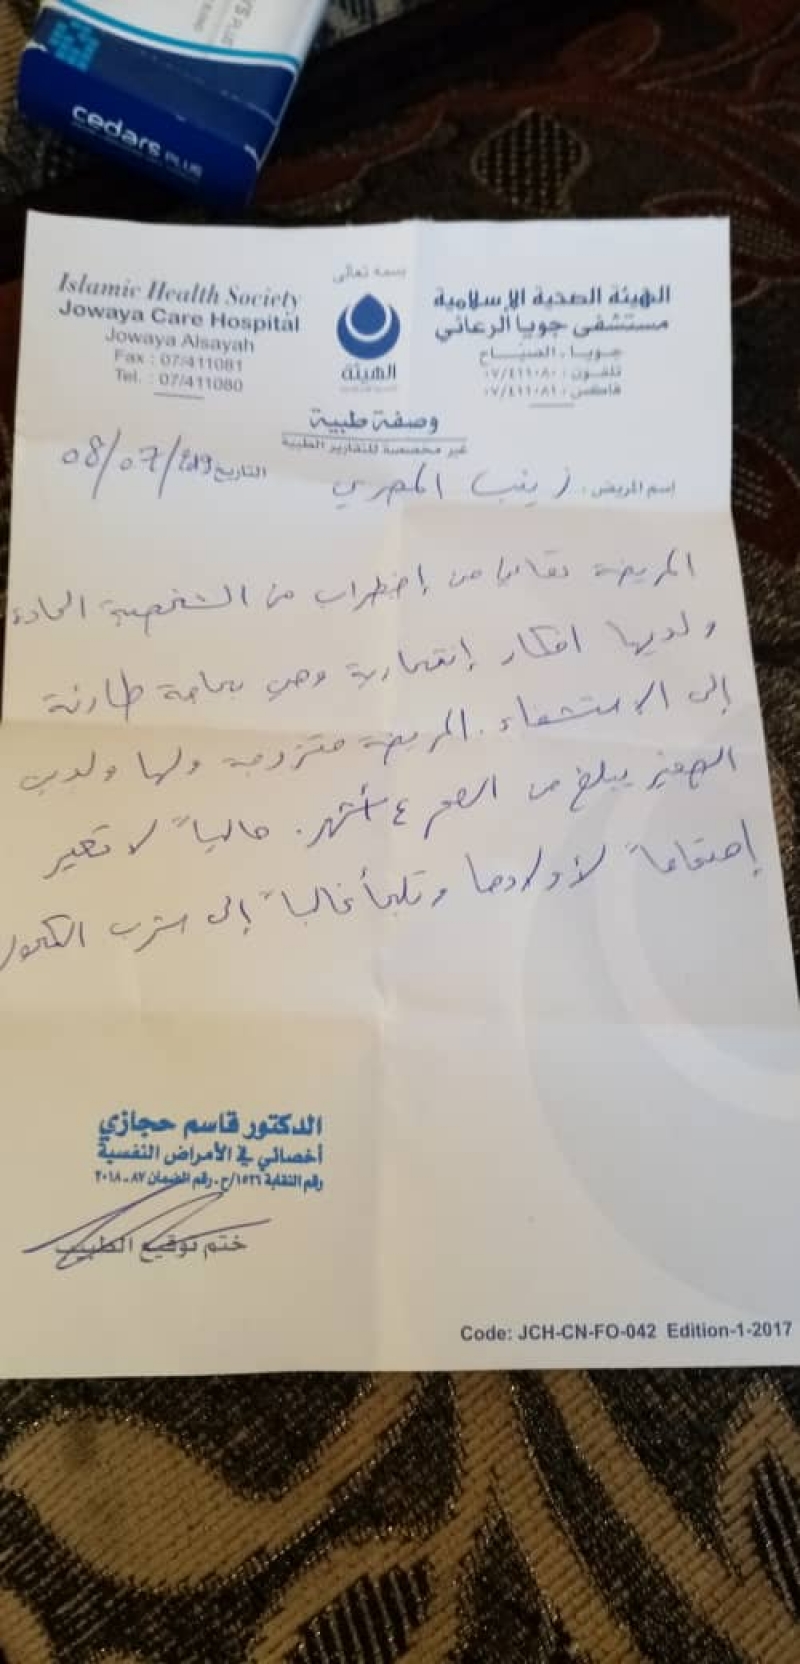 cedars PLUS
بسمه تعالى
Islamic Health Society
Jowaya Care Hospital
Jowaya Alsayah
Fax : 07/411081
Tel. : 07/411080
الهيئة
الهيئة الصحية الإسلامية
مستشفى جويا الرعائي
جويا ـ الصياح
تلفون : ٠٧/٤١١٠٨٠
فاكس : ٠٧/٤١١٠٨١
وصفة طبية
غير مخصصة للتقارير الطبية
إسم المريض : زينب المصري
التاريخ 08/07/2019
المريضة تعاني من إضطراب من الشخصية الحادة
ولديها افكار إنتحارية وهي بحاجة طارئة
إلى الاستشفاء. المريضة متزوجة ولها ولدين
الصغير يبلغ من العمر ٤ أشهر. حالياً لا تعير
إهتماماً لأولادها وتلجأ غالباً إلى شرب الكحول
الدكتور قاسم حجازي
أخصائي في الأمراض النفسية
رقم النقابة ١٥٢٦/ج ـ رقم الضمان ٨٧ ـ ٢٠١٨
ختم توقيع الطبيب
Code: JCH-CN-FO-042 Edition-1-2017